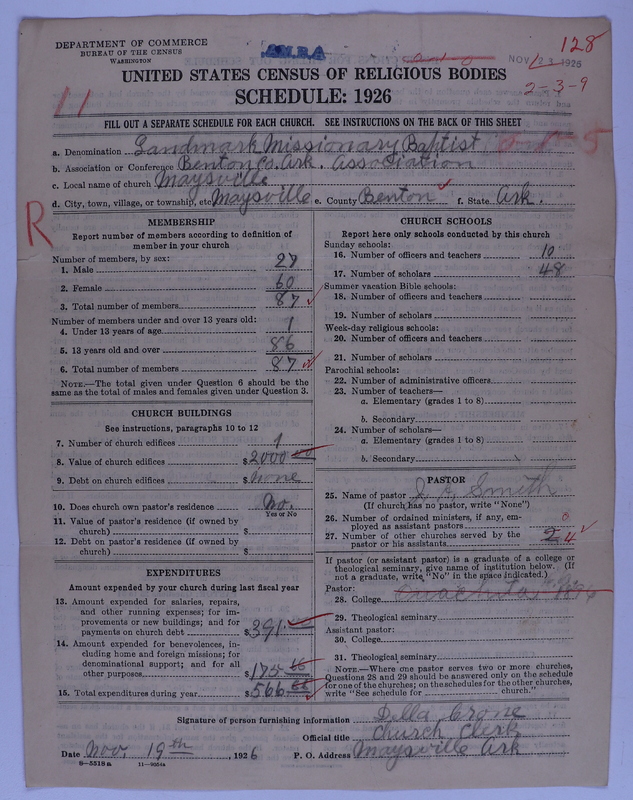 DEPARTMENT OF COMMERCE
BUREAU OF THE CENSUS
WASHINGTON
A.M.B.A
128
NOV 23 1926
2-3-9
UNITED STATES CENSUS OF RELIGIOUS BODIES
SCHEDULE: 1926
11
FILL OUT A SEPARATE SCHEDULE FOR EACH CHURCH. SEE INSTRUCTIONS ON THE BACK OF THIS SHEET
a. Denomination Landmark Missionary Baptist
5
b. Association or Conference Benton Co. Ark. Association
c. Local name of church Maysville
d. City, town, village, or township, etc. Maysville e. County Benton f. State Ark.
R
MEMBERSHIP
Report number of members according to definition of
member in your church
Number of members, by sex:
1. Male 27
2. Female 60
3. Total number of members 87
Number of members under and over 13 years old:
4. Under 13 years of age 1
5. 13 years old and over 86
6. Total number of members 87
NOTE.—The total given under Question 6 should be
same as the total of males and females given under Question 3.
CHURCH BUILDINGS
See instructions, paragraphs 10 to 12
7. Number of church edifices 1
8. Value of church edifices $2000 00
9. Debt on church edifices $none
10. Does church own pastor's residence No.
Yes or No
11. Value of pastor's residence (if owned by
church) $
12. Debt on pastor's residence (if owned by
church) $
EXPENDITURES
Amount expended by your church during last fiscal year
13. Amount expended for salaries, repairs,
and other running expenses; for im-
provements or new buildings; and for
payments on church debt $391.
14. Amount expended for benevolences, in-
cluding home and foreign missions; for
denominational support; and for all
other purposes $175
15. Total expenditures during year $566
CHURCH SCHOOLS
Report here only schools conducted by this church
Sunday schools:
16. Number of officers and teachers 10
17. Number of scholars 48
Summer vacation Bible schools:
18. Number of officers and teachers
19. Number of scholars
Week-day religious schools:
20. Number of officers and teachers
21. Number of scholars
Parochial schools:
22. Number of administrative officers
23. Number of teachers—
a. Elementary (grades 1 to 8)
b. Secondary
24. Number of scholars—
a. Elementary (grades 1 to 8)
b. Secondary
PASTOR
25. Name of pastor Smith
(If church has no pastor, write "None")
26. Number of ordained ministers, if any, em-
ployed as assistant pastors 0
27. Number of other churches served by the
pastor or his assistants 4
If pastor (or assistant pastor) is a graduate of a college or
theological seminary, give name of institution below. (If
not a graduate, write "No" in the space indicated.)
Pastor:
28. College Ouachita
29. Theological seminary
Assistant pastor:
30. College
31. Theological seminary
NOTE.—Where one pastor serves two or more churches,
Questions 28 and 29 should be answered only on the schedule
for one of the churches; on the schedules for the other churches,
write "See schedule for church."
Signature of person furnishing information Della Crone
Official title Church Clerk
Date Nov. 19th, 1926 P. O. Address Maysville Ark